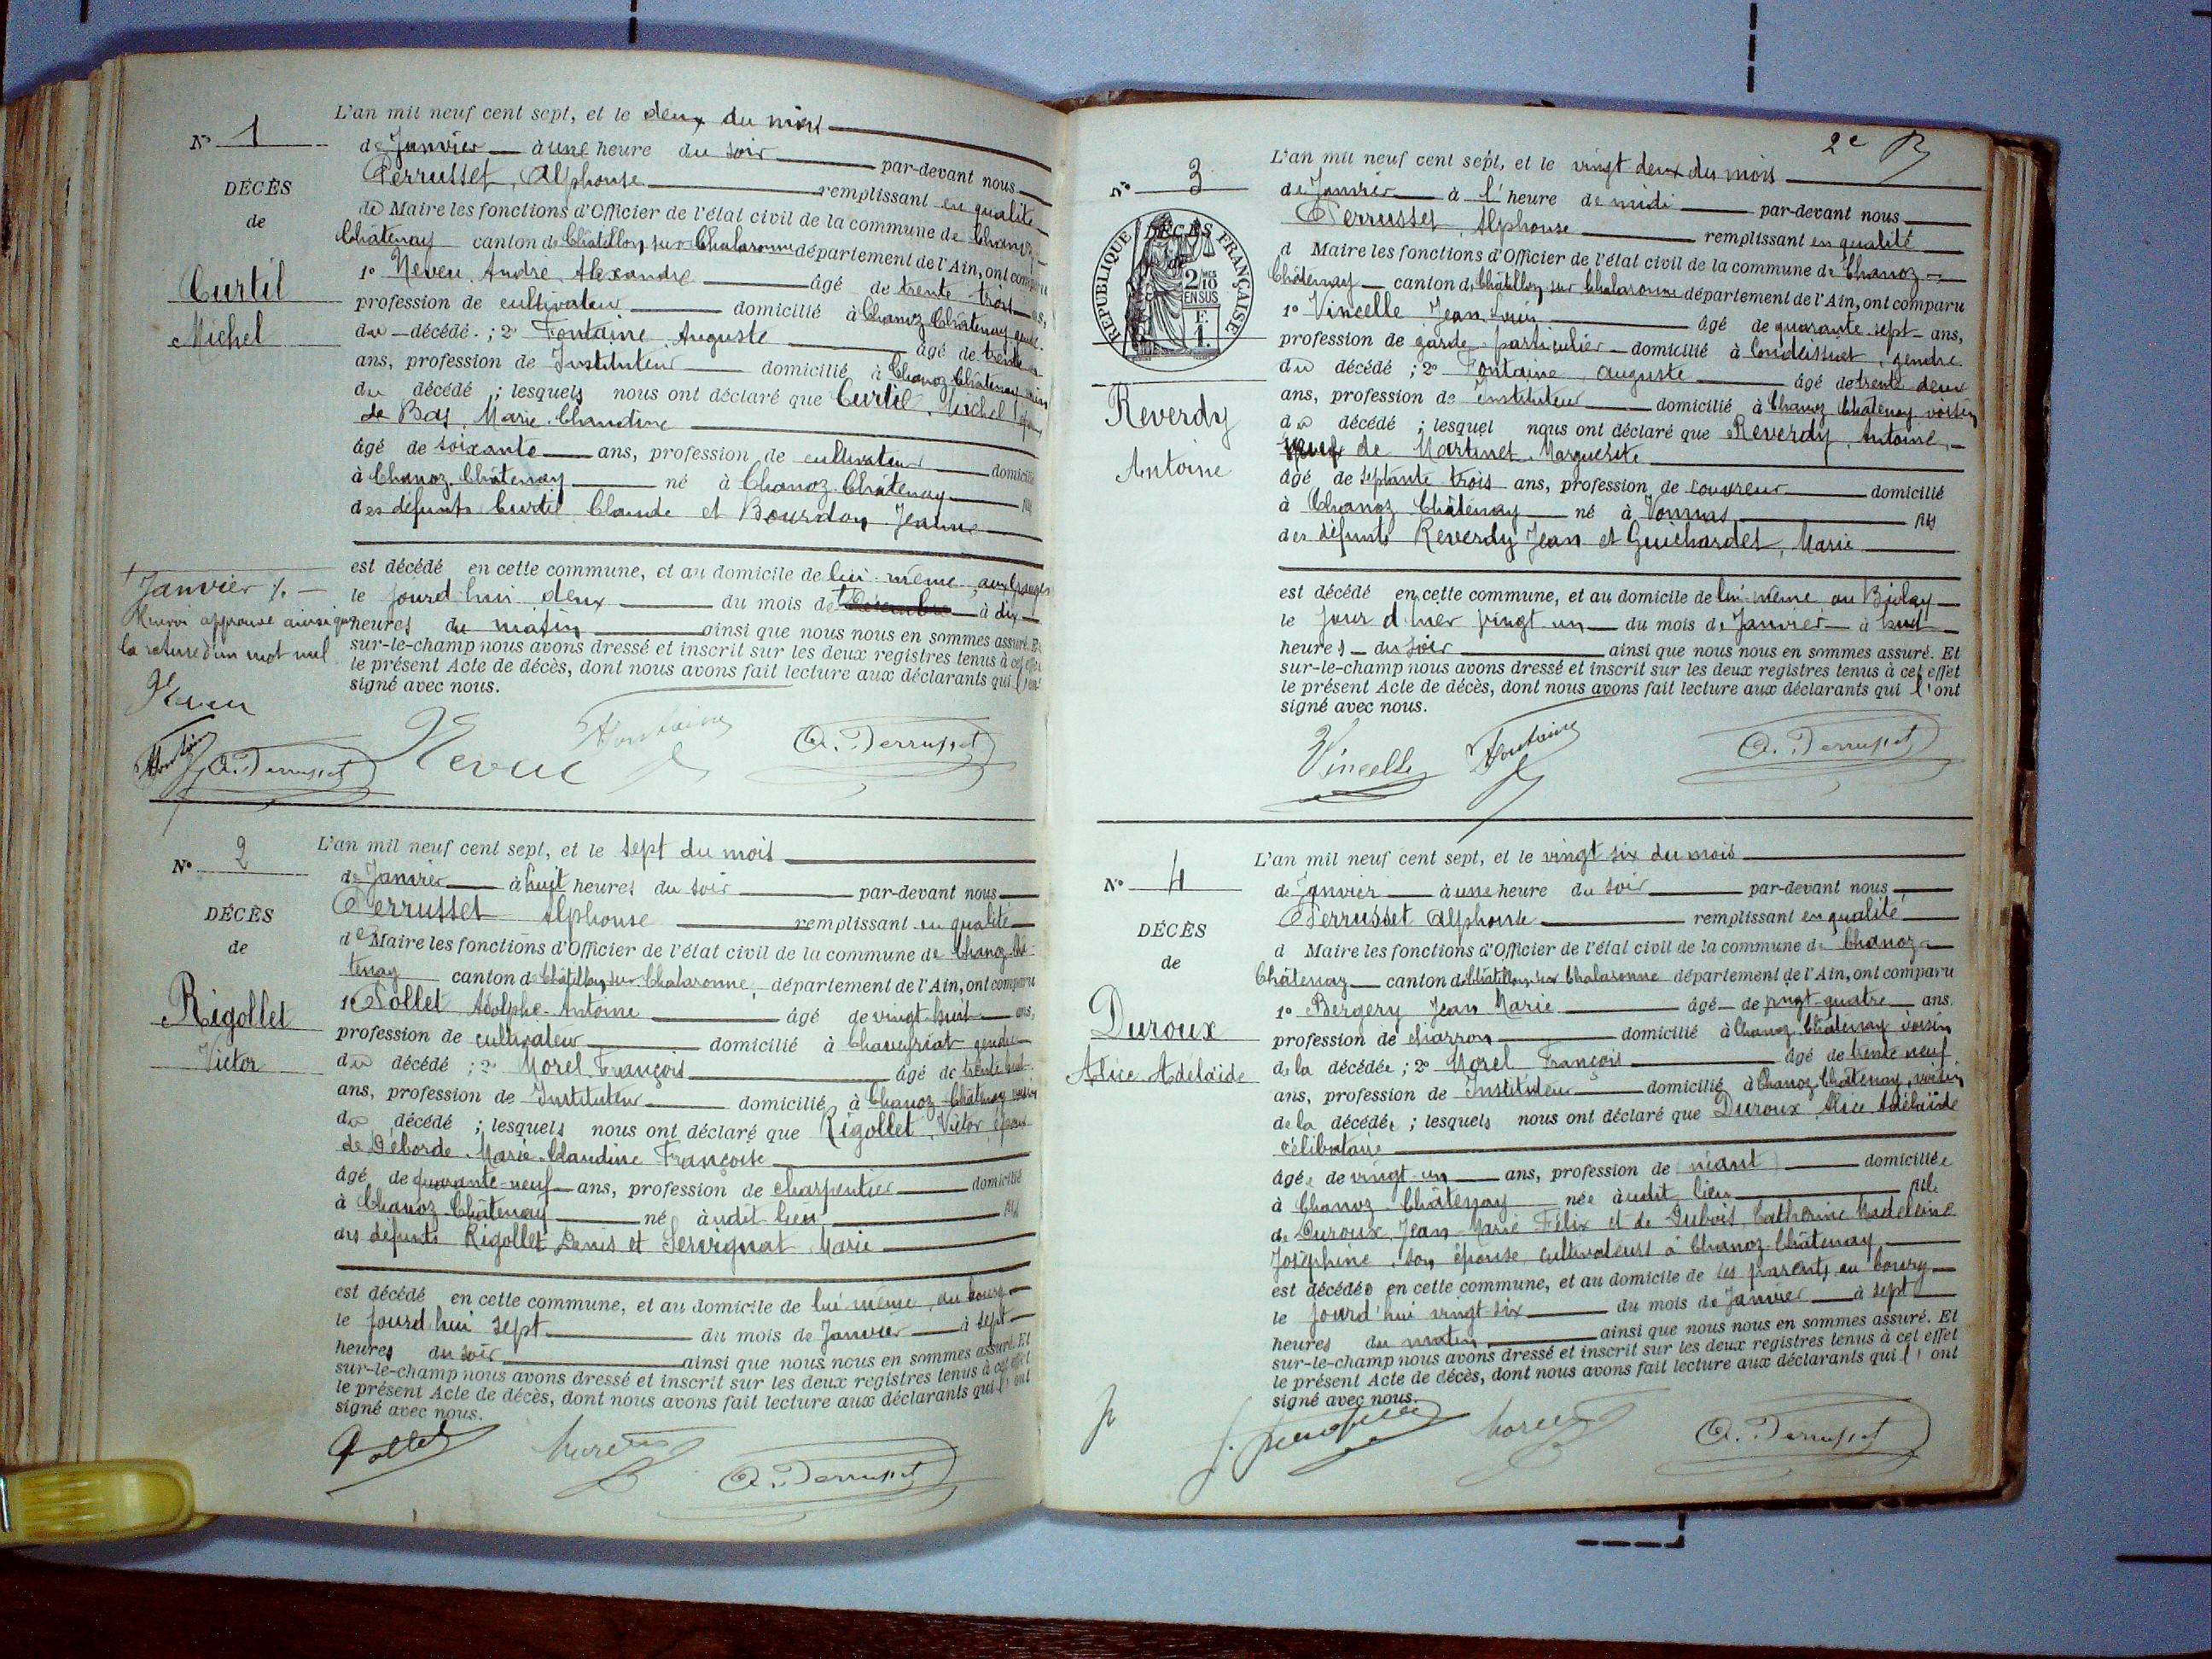 L'an mil neuf cent sept, et le deux du mois
N° 1
de Janvier à une heure du soir par-devant nous
DÉCÈS
de
Perrusset, Alphonse remplissant en qualité
de Maire les fonctions d'Officier de l'état civil de la commune de Chanoz-
Châtenay canton de Châtillon sur Chalaronne département de l'Ain, ont comparu
Curtil
Michel
1° Neveu André Alexandre âgé de trente trois ans,
profession de cultivateur domicilié à Chanoz Châtenay gendre
du décédé ; 2° Fontaine Auguste âgé de trente
ans, profession de Instituteur domicilié à Chanoz Châtenay voisin
du décédé ; lesquels nous ont déclaré que Curtil, Michel
de Bas, Marie Claudine
âgé de soixante ans, profession de cultivateur domicilié
à Chanoz Châtenay né à Chanoz-Châtenay fils
des défunts Curtil Claude et Bourdon Jeanne
est décédé en cette commune, et au domicile de lui-même
le jourd'hui deux du mois de à dix
heures du matin ainsi que nous nous en sommes assuré. Et
sur-le-champ nous avons dressé et inscrit sur les deux registres tenus à cet effet
le présent Acte de décès, dont nous avons fait lecture aux déclarants qui l'ont
signé avec nous.
Janvier
Renvoi approuvé ainsi que
la rature d'un mot nul
Neveu
Fontaine A. Perrusset
Neveu Fontaine A. Perrusset
N° 2
DÉCÈS
de
Rigollet
Victor
L'an mil neuf cent sept, et le sept du mois
de Janvier à huit heures du soir par-devant nous
Perrusset Alphonse remplissant en qualité
de Maire les fonctions d'Officier de l'état civil de la commune de Chanoz-Châ-
tenay canton de Châtillon sur Chalaronne, département de l'Ain, ont comparu
1° Pollet Adolphe Antoine âgé de vingt-huit ans,
profession de cultivateur domicilié à Chaveyriat gendre
du décédé ; 2° Morel François âgé de trente neuf
ans, profession de Instituteur domicilié à Chanoz-Châtenay voisin
du décédé ; lesquels nous ont déclaré que Rigollet, Victor, époux
de Déborde Marie Claudine Françoise
âgé de quarante-neuf ans, profession de charpentier domicilié
à Chanoz-Châtenay né audit lieu fils
des défunts Rigollet Denis et Servignat Marie
est décédé en cette commune, et au domicile de lui-même, au bourg
le jourd'hui sept du mois de Janvier à sept
heures du soir ainsi que nous nous en sommes assuré. Et
sur-le-champ nous avons dressé et inscrit sur les deux registres tenus à cet effet
le présent Acte de décès, dont nous avons fait lecture aux déclarants qui l'ont
signé avec nous.
Pollet Morel A. Perrusset
2e
N° 3
RÉPUBLIQUE FRANÇAISE
DÉCÈS
de
2 MES
10
EN SUS
F.
1.
Reverdy
Antoine
L'an mil neuf cent sept, et le vingt deux du mois
de Janvier à l'heure de midi par-devant nous
Perrusset, Alphonse remplissant en qualité
d Maire les fonctions d'Officier de l'état civil de la commune de Chanoz-
Châtenay canton de Châtillon sur Chalaronne département de l'Ain, ont comparu
1° Vincelle Jean Louis âgé de quarante sept ans,
profession de garde particulier domicilié à Condeissiat, gendre
du décédé ; 2° Fontaine Auguste âgé de trente deux
ans, profession de Instituteur domicilié à Chanoz Châtenay voisin
du décédé ; lesquel nous ont déclaré que Reverdy Antoine,
veuf de Martinet Marguerite
âgé de septante trois ans, profession de couvreur domicilié
à Chanoz Châtenay né à Vonnas fils
des défunts Reverdy Jean et Guichardet, Marie
est décédé en cette commune, et au domicile de lui-même, au Biolay
le jour d'hier vingt un du mois de Janvier à huit
heures du soir ainsi que nous nous en sommes assuré. Et
sur-le-champ nous avons dressé et inscrit sur les deux registres tenus à cet effet
le présent Acte de décès, dont nous avons fait lecture aux déclarants qui l'ont
signé avec nous.
Vincelle Fontaine A. Perrusset
N° 4
DÉCÈS
de
Duroux
Alice Adélaïde
L'an mil neuf cent sept, et le vingt six du mois
de Janvier à une heure du soir par-devant nous
Perrusset Alphonse remplissant en qualité
d Maire les fonctions d'Officier de l'état civil de la commune de Chanoz-
Châtenay canton de Châtillon sur Chalaronne département de l'Ain, ont comparu
1° Bergery Jean Marie âgé de vingt-quatre ans.
profession de charron domicilié à Chanoz Châtenay voisin
de la décédée ; 2° Morel François âgé de trente neuf
ans, profession de Instituteur domicilié à Chanoz-Châtenay, voisin
de la décédée ; lesquels nous ont déclaré que Duroux Alice Adélaïde
célibataire
âgée de vingt-un ans, profession de néant domiciliée
à Chanoz Châtenay née audit lieu fille
de Duroux, Jean Marie Félix et de Dubois, Catherine Madeleine
Joséphine, son épouse, cultivateurs à Chanoz-Châtenay
est décédée en cette commune, et au domicile de ses parents, au bourg
le jourd'hui vingt-six du mois de Janvier à sept
heures du matin ainsi que nous nous en sommes assuré. Et
sur-le-champ nous avons dressé et inscrit sur les deux registres tenus à cet effet
le présent Acte de décès, dont nous avons fait lecture aux déclarants qui l'ont
signé avec nous.
Morel A. Perrusset